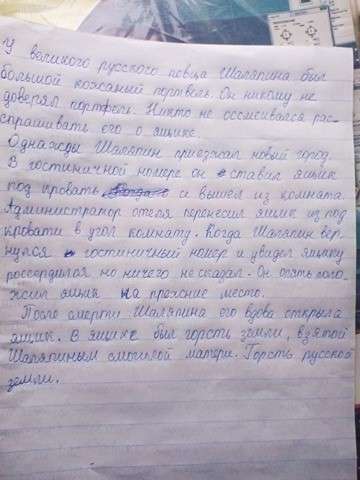 У великого русского певца Шаляпина был
большой кожаный портвель. Он никому не
доверял портфель. Никто не оссмеивался рас-
спрашивать его о ящике.
Однажды Шаляпин приезжал новый город.
В гостиничной номере он ставил ящик
под кровать и вышел из комната.
Администратор отеля перенесил ящик из под
кровати в угол комнату. Когда Шаляпин вер-
нулся в гостиничный номер и увидел ящику
россердился но ничего не сказал. Он опять поло-
жсил ящик на прежние место.
После смерти Шаляпина его вдова открыла
ящик. В ящике был горсть земли, взятой
Шаляпиным смогилой матери. Горсть русской
земли.